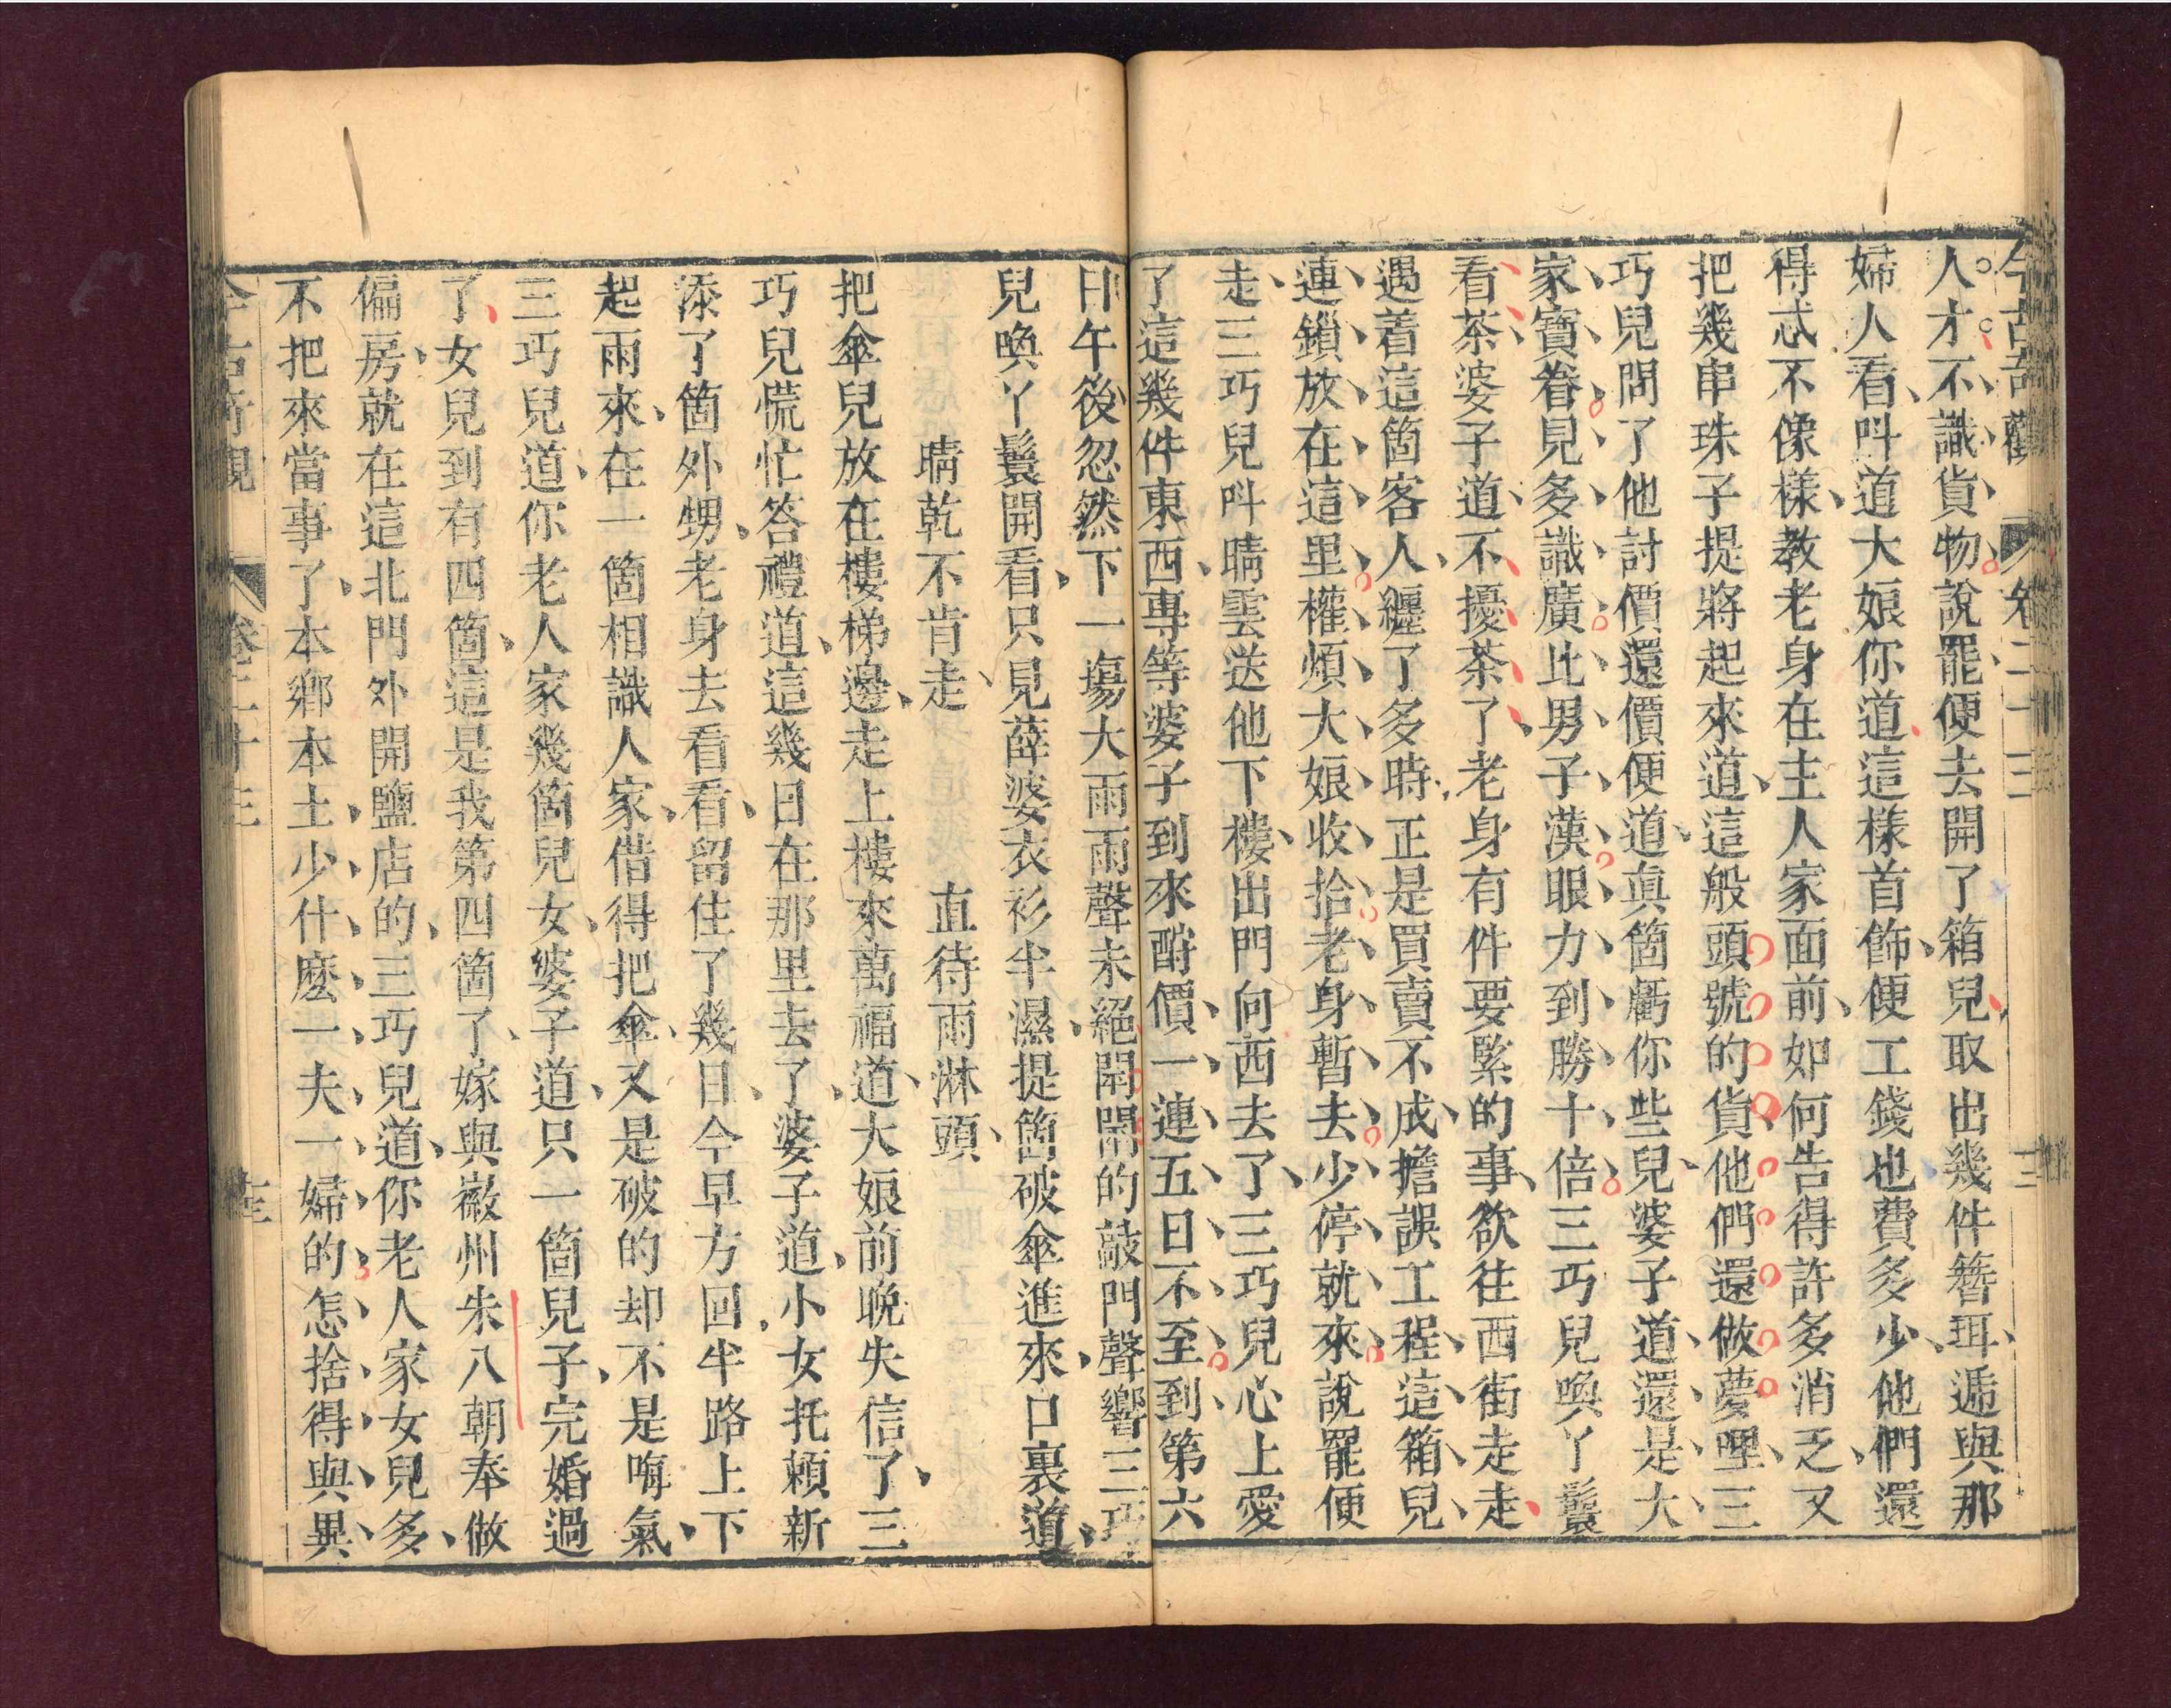 今古奇觀 卷二十三 十二
人才不識貨物說罷便去開了箱兒取出幾件簪珥遞與那
婦人看呌道大娘你道這樣首飾便工錢也費多少他們還
得忒不像樣教老身在主人家面前如何告得許多消乏又
把幾串珠子提將起來道這般頭號的貨他們還做夢哩三
巧兒問了他討價還價便道眞箇虧你些兒婆子道還是大
家寶眷見多識廣比男子漢眼力到勝十倍三巧兒喚丫鬟
看茶婆子道不擾茶了老身有件要緊的事欲往西街走走
遇着這箇客人纏了多時正是買賣不成擔誤工程這箱兒
連鎖放在這里權煩大娘收拾老身暫去少停就來說罷便
走三巧兒呌晴雲送他下樓出門向西去了三巧兒心上愛
了這幾件東西專等婆子到來酧價一連五日不至到第六
日午後忽然下一塲大雨雨聲未絕閛閛的敲門聲響三巧
兒喚丫鬟開看只見薛婆衣衫半濕提箇破傘進來口裏道
晴乾不肯走 直待雨淋頭
把傘兒放在樓梯邊走上樓來萬福道大娘前晚失信了三
巧兒慌忙答禮道這幾日在那里去了婆子道小女托賴新
添了箇外甥老身去看看留住了幾日今早方回半路上下
起雨來在一箇相識人家借得把傘又是破的却不是晦氣
三巧兒道你老人家幾箇兒女婆子道只一箇兒子完婚過
了女兒到有四箇這是我第四箇了嫁與徽州朱八朝奉做
偏房就在這北門外開鹽店的三巧兒道你老人家女兒多
不把來當事了本鄕本土少什麽一夫一婦的怎捨得與異
今古奇觀 卷二十三 十三